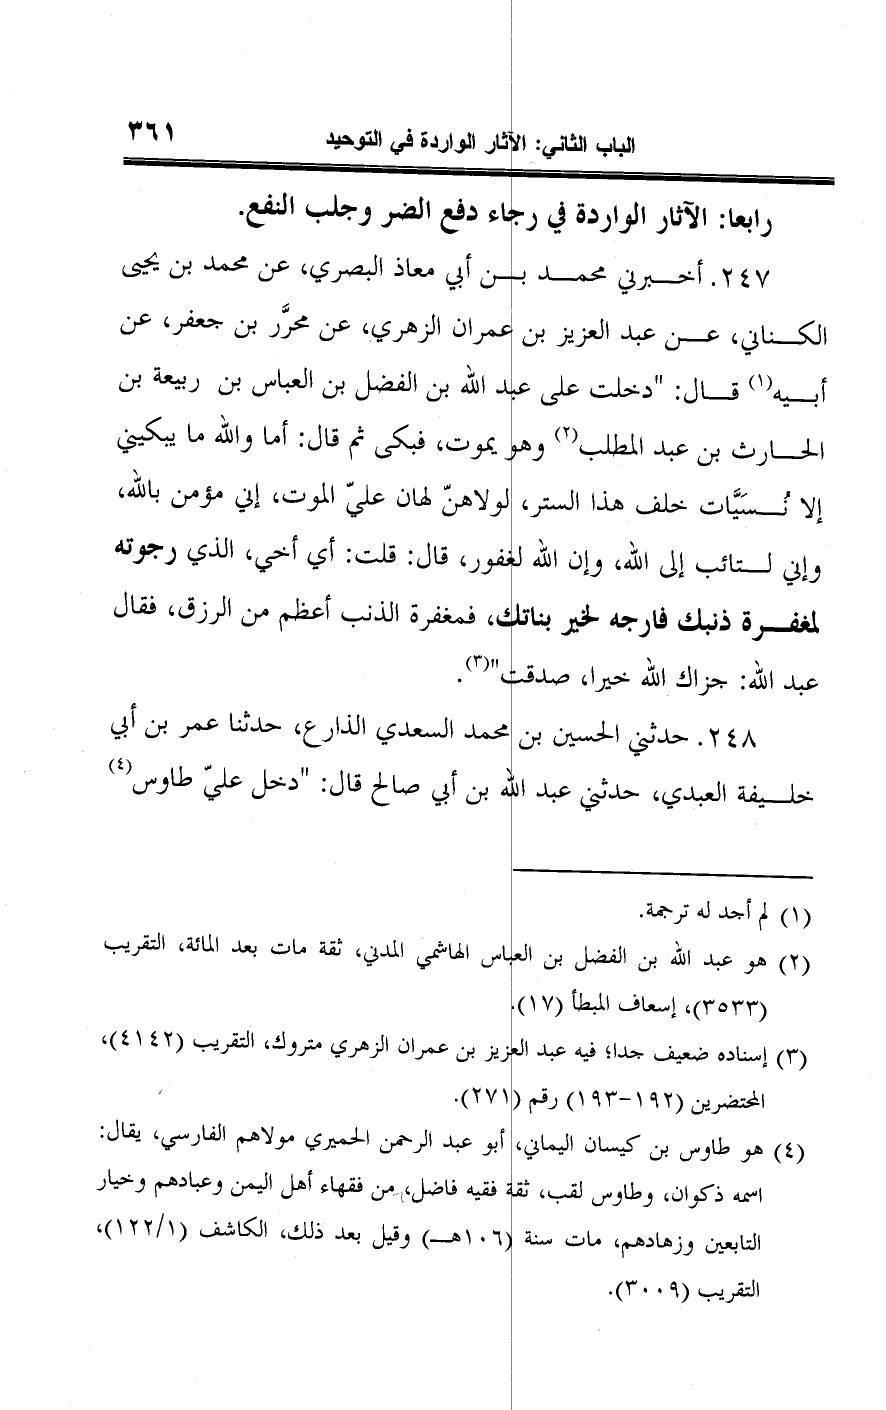 الباب الثاني: الآثار الواردة في التوحيد ٣٦١
رابعا: الآثار الواردة في رجاء دفع الضر وجلب النفع.
٢٤٧. أخبرني محمد بن أبي معاذ البصري، عن محمد بن يحيى
الكناني، عن عبد العزيز بن عمران الزهري، عن محرَّر بن جعفر، عن
أبيه(١) قال: "دخلت على عبد الله بن الفضل بن العباس بن ربيعة بن
الحارث بن عبد المطلب(٢) وهو يموت، فبكى ثم قال: أما والله ما يبكيني
إلا نُسَيَّات خلف هذا الستر، لولاهنّ لهان عليّ الموت، إني مؤمن بالله،
وإني لتائب إلى الله، وإن الله لغفور، قال: قلت: أي أخي، الذي رجوته
لمغفرة ذنبك فارجه لخير بناتك، فمغفرة الذنب أعظم من الرزق، فقال
عبد الله: جزاك الله خيرا، صدقت"(٣).
٢٤٨. حدثني الحسين بن محمد السعدي الذارع، حدثنا عمر بن أبي
خليفة العبدي، حدثني عبد الله بن أبي صالح قال: "دخل عليّ طاوس(٤)
(١) لم أجد له ترجمة.
(٢) هو عبد الله بن الفضل بن العباس الهاشمي المدني، ثقة مات بعد المائة، التقريب
(٣٥٣٣)، إسعاف المبطأ (١٧).
(٣) إسناده ضعيف جدا؛ فيه عبد العزيز بن عمران الزهري متروك، التقريب (٤١٤٢)،
المحتضرين (١٩٢-١٩٣) رقم (٢٧١).
(٤) هو طاوس بن كيسان اليماني، أبو عبد الرحمن الحميري مولاهم الفارسي، يقال:
اسمه ذكوان، وطاوس لقب، ثقة فقيه فاضل، من فقهاء أهل اليمن وعبادهم وخيار
التابعين وزهادهم، مات سنة (١٠٦هـ) وقيل بعد ذلك، الكاشف (١٢٢/١)،
التقريب (٣٠٠٩).